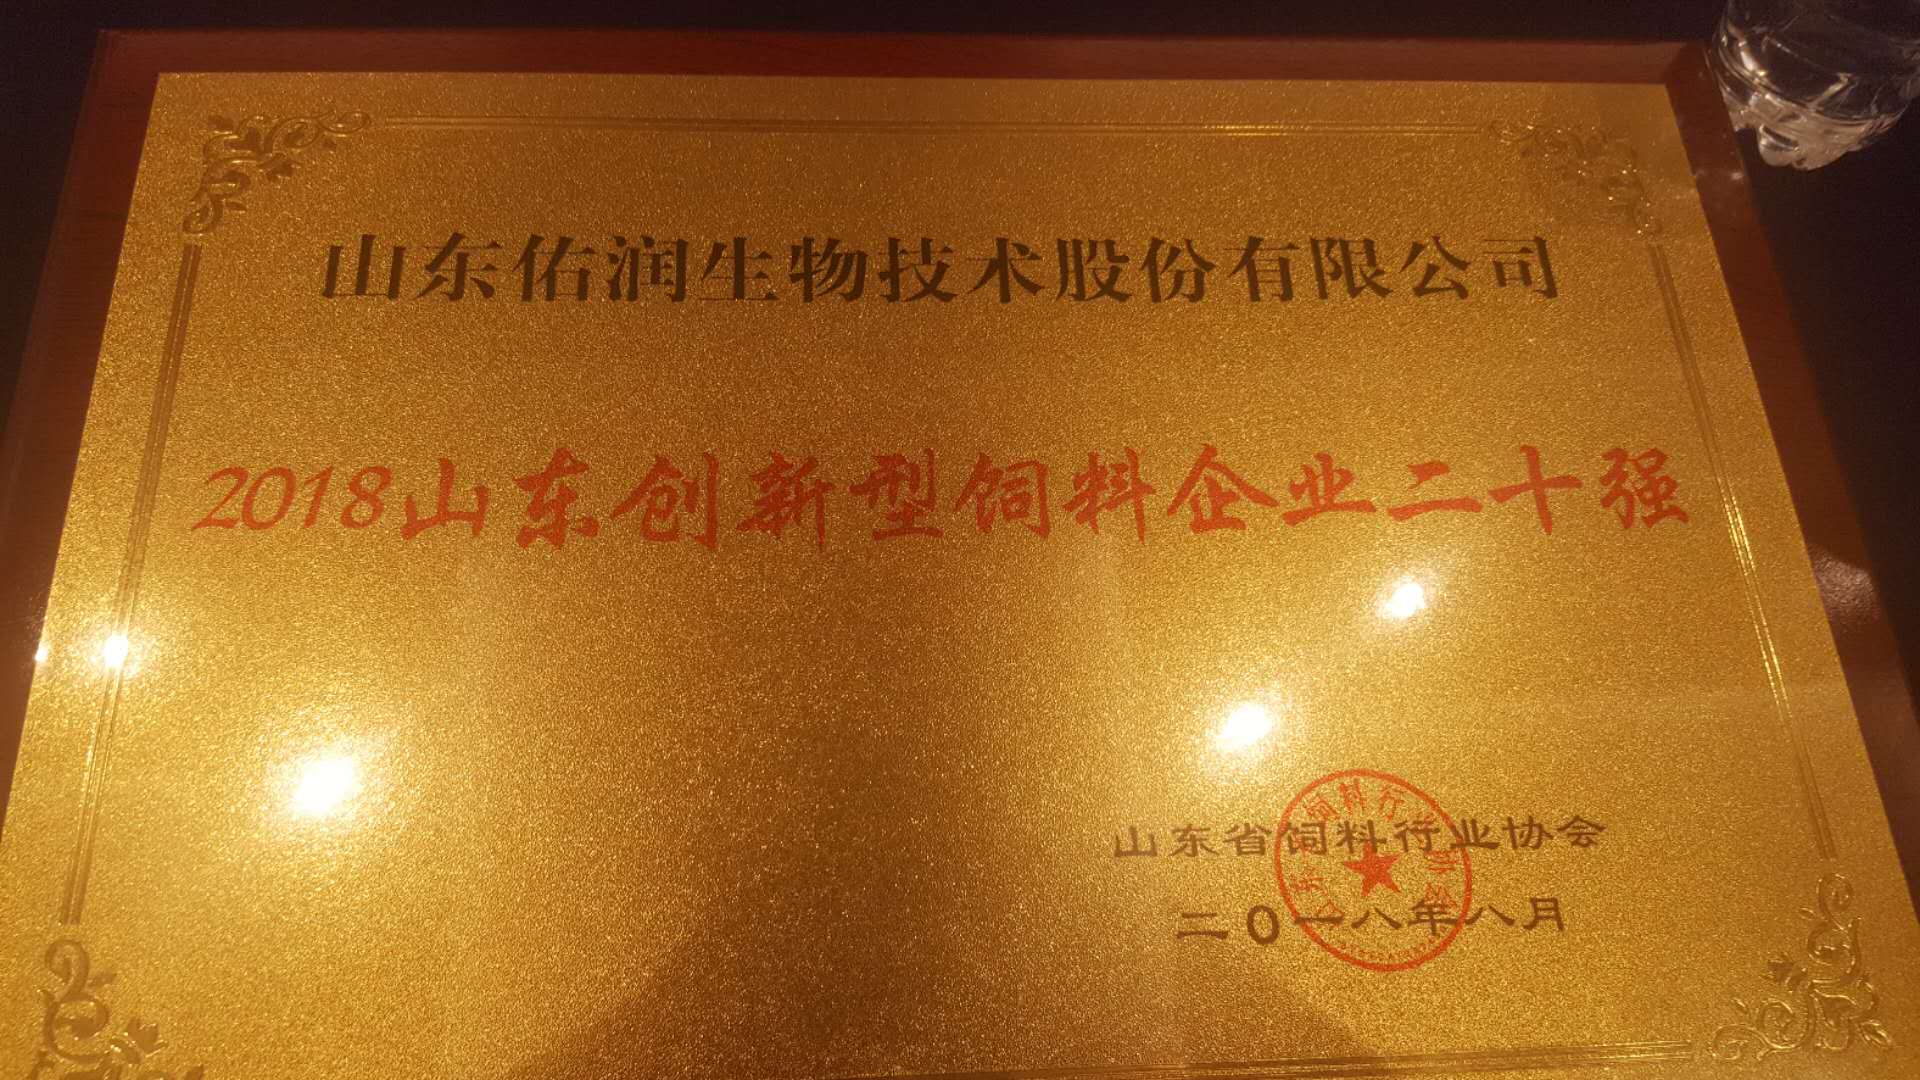 山东佑润生物技术股份有限公司
2018山东创新型饲料企业二十强
山东省饲料行业协会
二0一八年八月